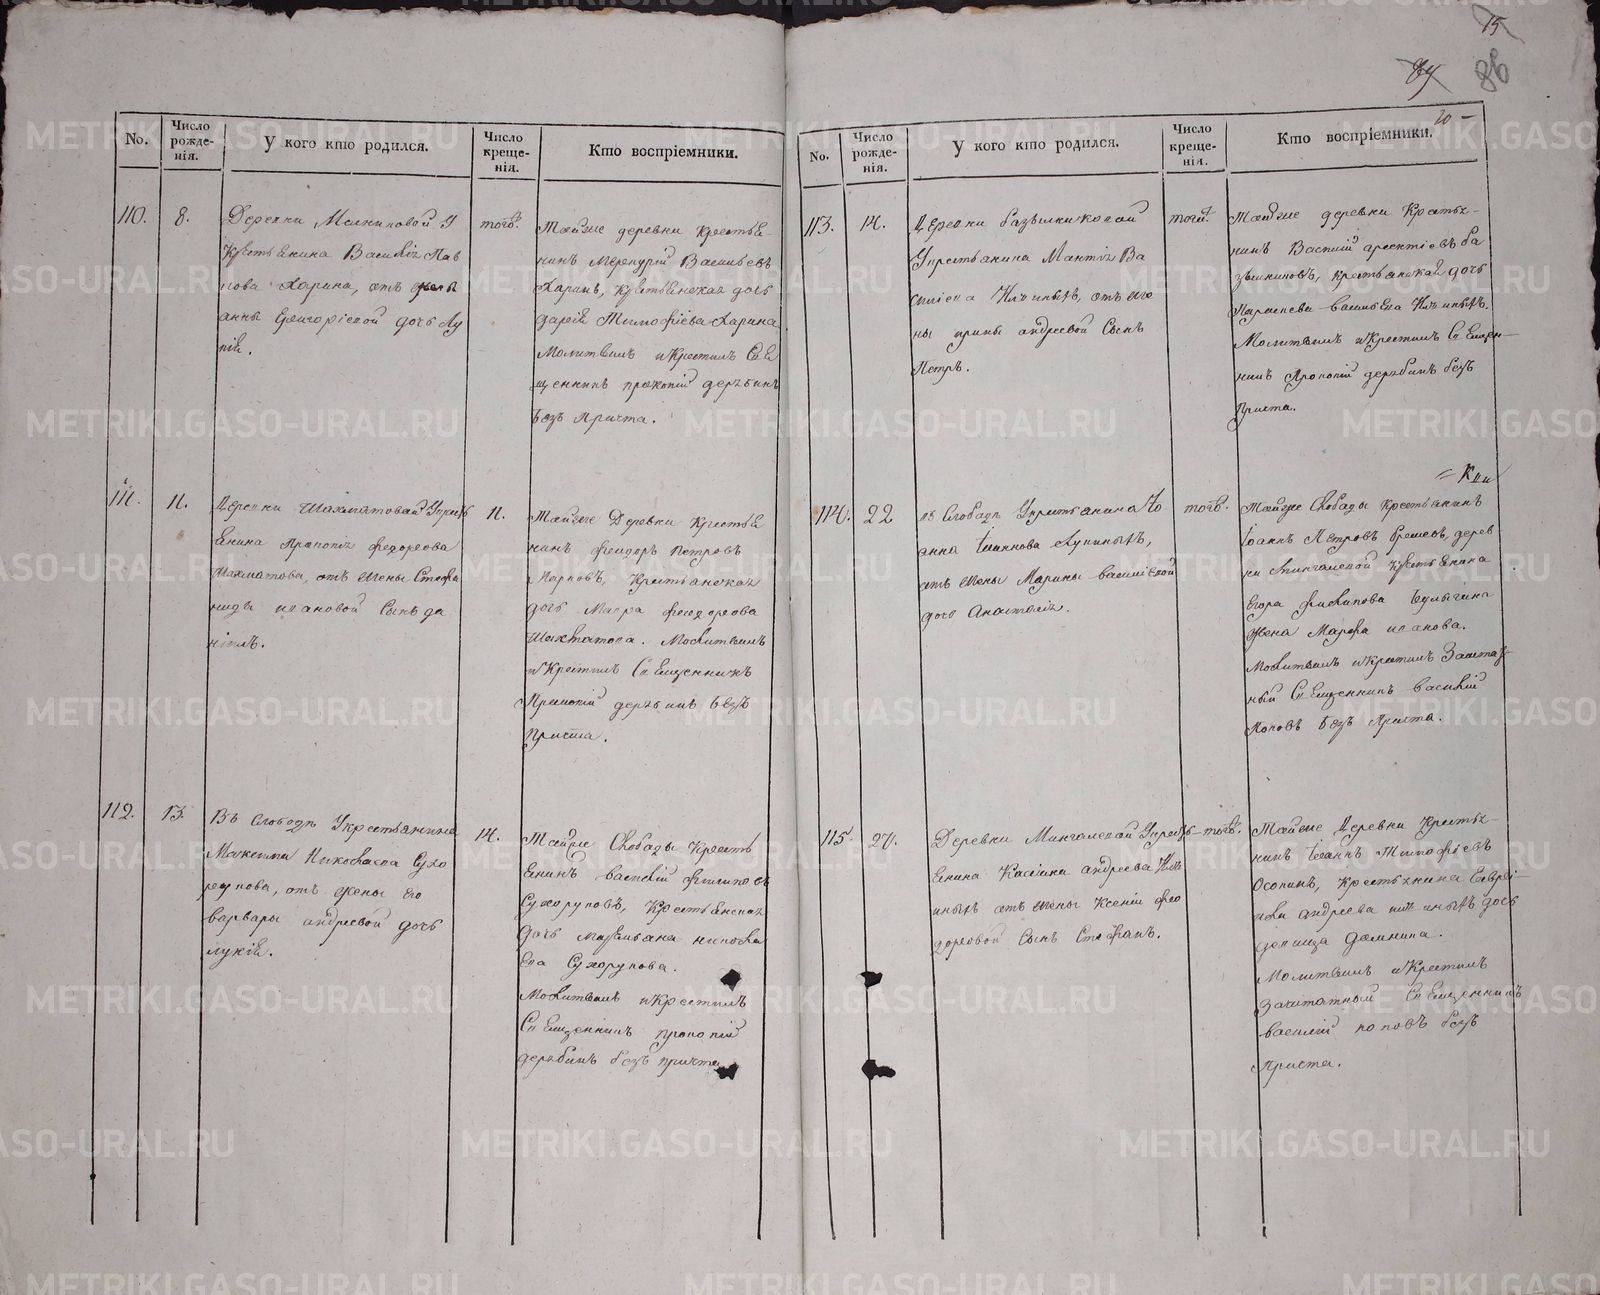 15
84
86
20 -
No.
Число рожде- нія.
У кого кто родился.
Число креще- нія.
Кто воспріемники.
110.
8.
Деревни
у
Крестьянина Василія Пав
лова Харина, отъ жены
анны Григоріевой дочь Лу
кія.
тогож.
Тойже деревни Крестья-
нинъ Меркурій Васильевъ
Харинъ, Крестьянская дочь
дарія Тимофіева Харина
Молитвилъ и Крестилъ Свя
щенникъ прокопій дерябинъ
безъ Причта.
111.
11.
Деревни Шахматовой у крест
янина Прокопія федорова
Шахматова, отъ жены Стефа
ниды ивановой Сынъ да
ніилъ.
11.
Тойже Деревни Крестья
нинъ феодоръ Петровъ
Крестьянская
дочь Мавра феодорова
Шахматова. Молитвилъ
и Крестилъ Священникъ
Прокопій дерябинъ безъ
Причта.
112.
13.
Въ Слободѣ у крестьянина
Максима Николаева Сухо
рукова, отъ жены его
варвары андреевой дочь
лукія.
14.
Тойже Слободы Крестья
янинъ василій филиповъ
Сухоруковъ, Крестьянская
дочь никола
ева Сухорукова.
Молитвилъ и Крестилъ
Священникъ прокопій
дерябинъ безъ причта
No.
Число рожде- нія.
У кого кто родился.
Число креще- нія.
Кто воспріемники.
113.
14.
Деревни
у крестьянина Ва
силіева отъ же
ны ирины андреевой Сынъ
Петръ.
тогож.
Тойже деревни Крестья-
нинъ Василій
крестьянская дочь
васильева
Молитвилъ и Крестилъ Священ-
никъ Прокопій дерябинъ безъ
Причта.
114.
22
въ Слободѣ у крестьянина Іо
анна
отъ жены Марины василіевой
дочь Анастасія.
тогож.
Тойже Слободы Крестьянинъ
Іоаннъ Петровъ дерев
ни Мингалевой Крестьянина
Егора филипова
жена Марфа иванова.
Молитвилъ и крестилъ Заштат-
ный Священникъ василій
Поповъ безъ Причта.
115.
27.
Деревни Мингалевой у крест
янина Касіяна андреева
отъ жены ксеніи фео
доровой Сынъ Стефанъ.
тогож.
Тойже Деревни Крестья-
нинъ Іоаннъ Тимофіевъ
Осокинъ, крестьянина
андреева дочь
девица домнина.
Молитвилъ и Крестилъ
Заштатный Священникъ
василій поповъ безъ
Причта.
METRIKI.GASO-URAL.RU